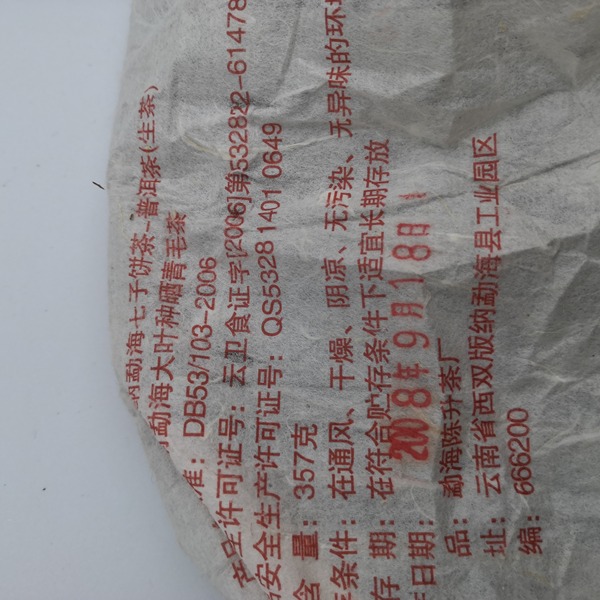 纳勐海七子饼茶-普洱茶(生茶)
勐海大叶种晒青毛茶
准：DB53/103-2006
产卫生许可证号：云卫食证字[2006]第532822-61478
安全生产许可证号：QS5328 1401 0649
含 量：357克
条件：在通风、干燥、阴凉、无污染、无异味的环境
存 期：在符合贮存条件下适宜长期存放
日期：2008年9月18日
品：勐海陈升茶厂
址：云南省西双版纳勐海县工业园区
编：666200